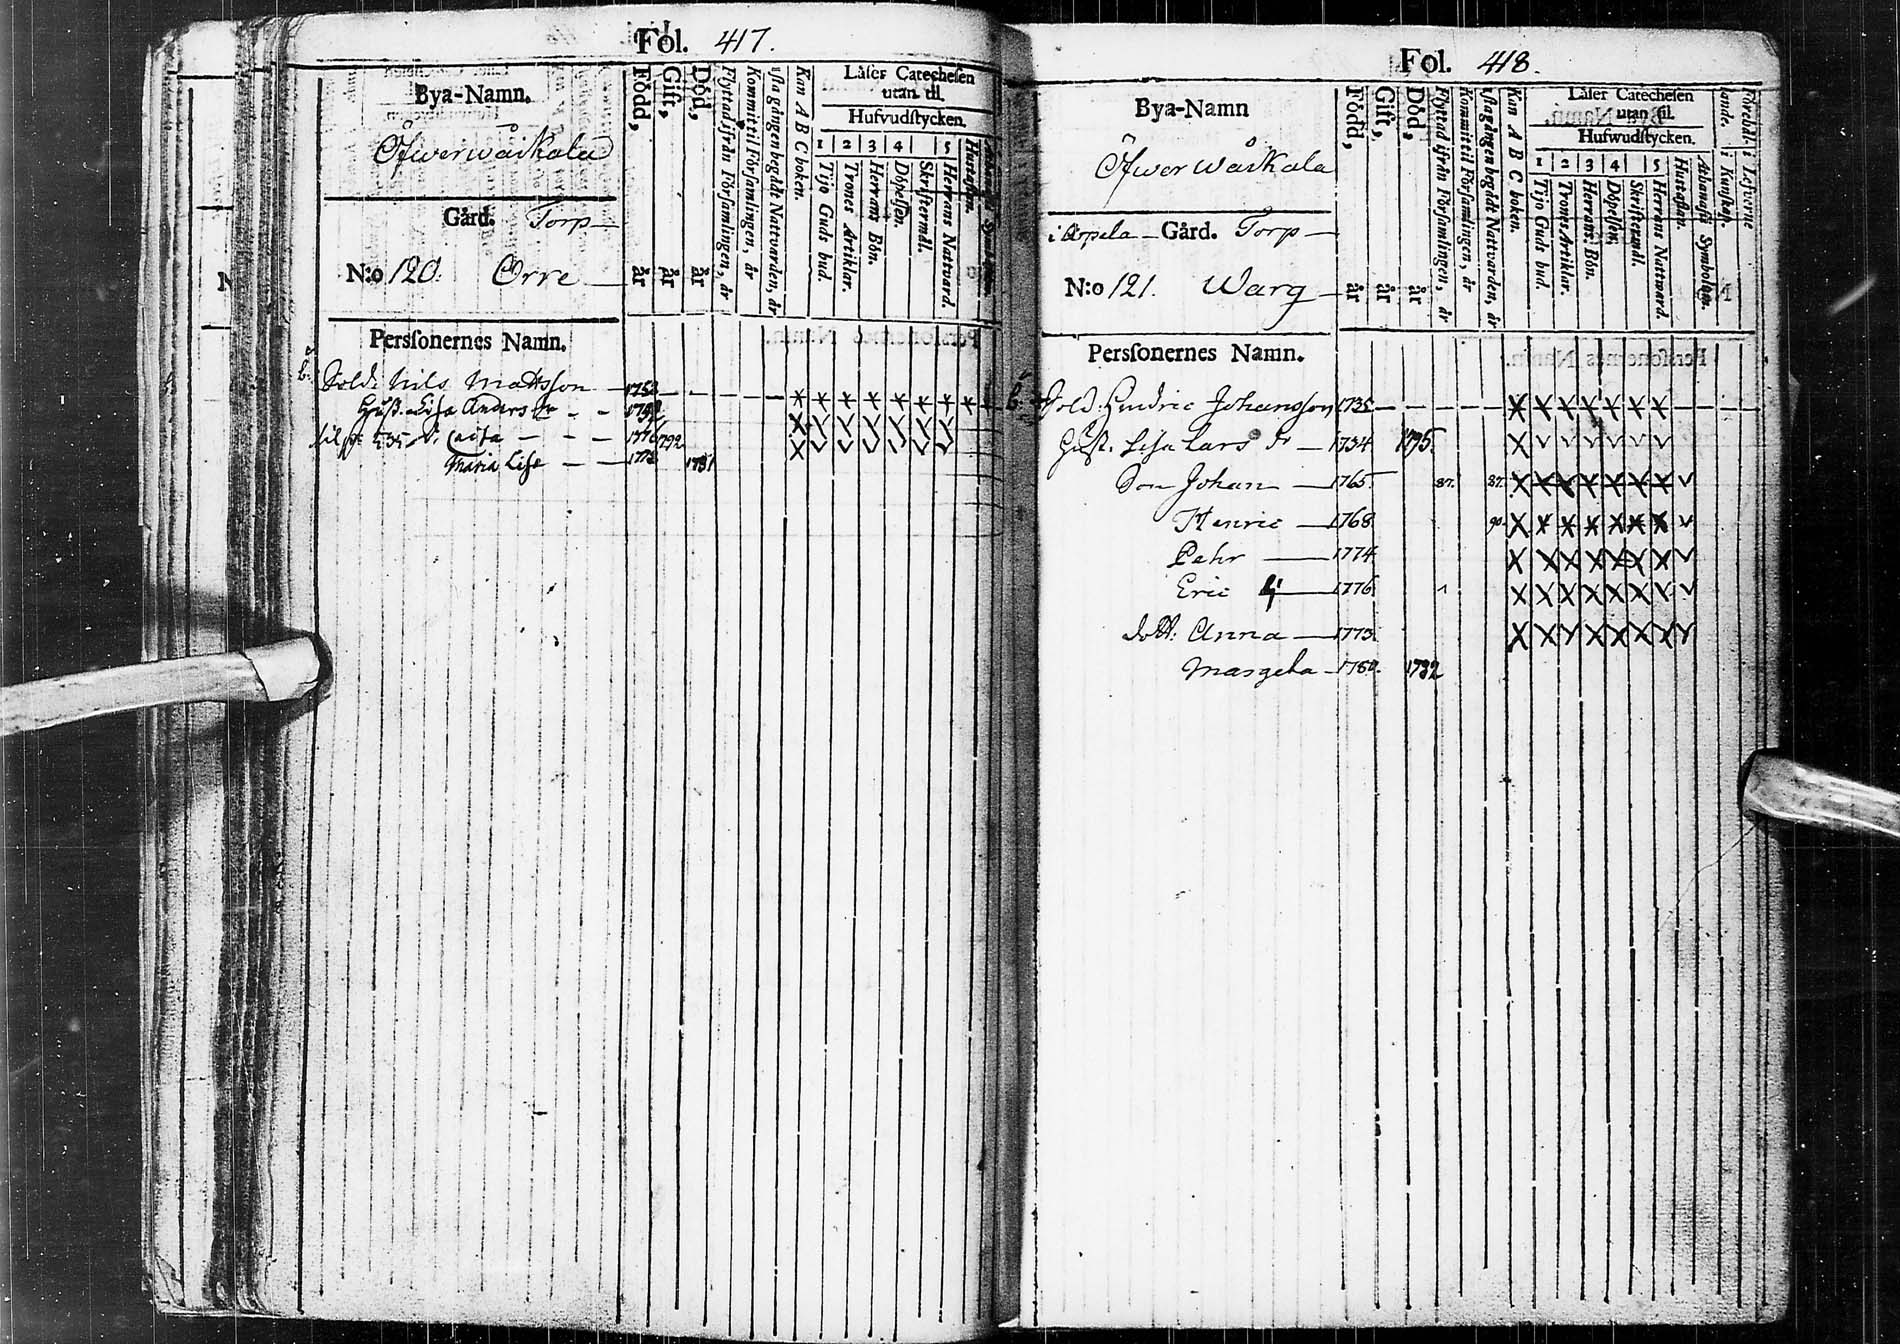 Fol. 417.
Bya-Namn.
Öfwerwåikala
Gård. Torp
N:o 120. Orre
Personernes Namn.
Född, år
Gift, år
Död, år
Flyttad ifrån Församlingen, år
Kommit til Församlingen, år
1sta gången begådt Nattvarden, år
Kan A B C boken.
Låser Catechesen
utan til.
Hufvudstycken.
1 2 3 4 5
Tijo Guds bud.
Trones Artiklar.
Herrans Bön.
Döpelsen.
Skriftermål.
Herrans Nattvard.
Hustaflan.
Sold. Nils Mattsson 1753
Hust. Lisa Anders dr
Caisa 1776 1792
Maria Lisa 1781
Fol. 418.
Bya-Namn
Öfwer Wåikala
i Arpela Gård. Torp
N:o 121. Warg
Personernes Namn.
Född, år
Gift, år
Död, år
Flyttad ifrån Församlingen, år
Kommit til Församlingen, år
1sta gången begådt Nattvarden, år
Kan A B C boken.
Låser Catechesen
utan til.
Hufwudstycken.
1 2 3 4 5
Tijo Guds bud.
Trones Artiklar.
Herrans Bön.
Döpelsen.
Skriftermål.
Herrans Nattward.
Hustaflan.
Athanasii Symbolum.
i Kunskap.
i Lefwerne
Sold. Hindric Johansson 1735
Hust. Lisa Lars dr 1734 1795.
Son Johan 1765. 87. 87.
Henric 1768 90.
Pehr 1774
Eric 1776
dott: Anna 1773.
Margeta 1780. 1782